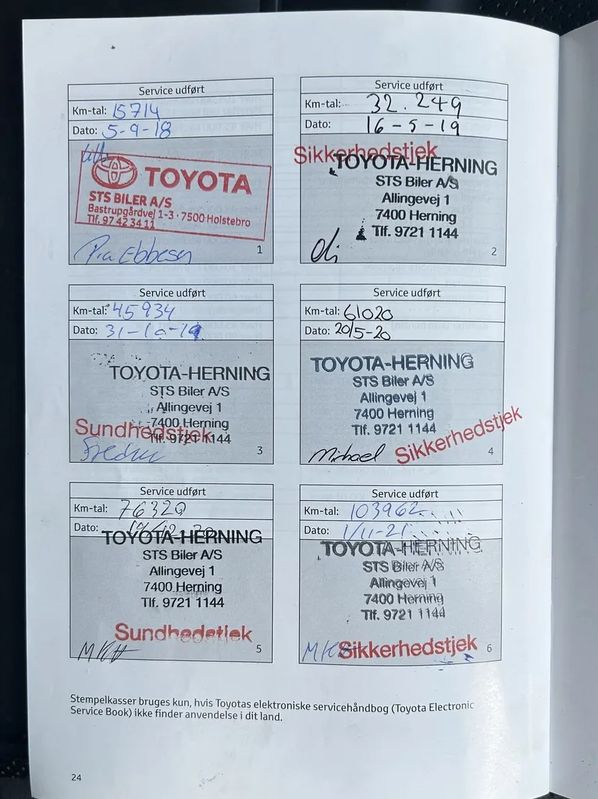 Service udført
Km-tal: 15714
Dato: 5-9-18
TOYOTA
STS BILER A/S
Bastrupgårdvej 1-3 · 7500 Holstebro
Tlf. 97 42 34 11
Pia Ebbesen
1
Service udført
Km-tal: 32.249
Dato: 16-5-19
Sikkerhedstjek
TOYOTA-HERNING
STS Biler A/S
Allingevej 1
7400 Herning
Tlf. 9721 1144
2
Service udført
Km-tal: 45934
Dato: 31-10-19
TOYOTA-HERNING
STS Biler A/S
Allingevej 1
7400 Herning
Sundhedstjek
Tlf. 9721 1144
3
Service udført
Km-tal: 61020
Dato: 20/5-20
TOYOTA-HERNING
STS Biler A/S
Allingevej 1
7400 Herning
Tlf. 9721 1144
Michael
Sikkerhedstjek
4
Service udført
Km-tal: 76320
Dato:
TOYOTA-HERNING
STS Biler A/S
Allingevej 1
7400 Herning
Tlf. 9721 1144
Sundhedstjek
5
Service udført
Km-tal: 103962
Dato: 1/11-21
TOYOTA-HERNING
STS Biler A/S
Allingevej 1
7400 Herning
Tlf. 9721 1144
Sikkerhedstjek
6
Stempelkasser bruges kun, hvis Toyotas elektroniske servicehåndbog (Toyota Electronic
Service Book) ikke finder anvendelse i dit land.
24